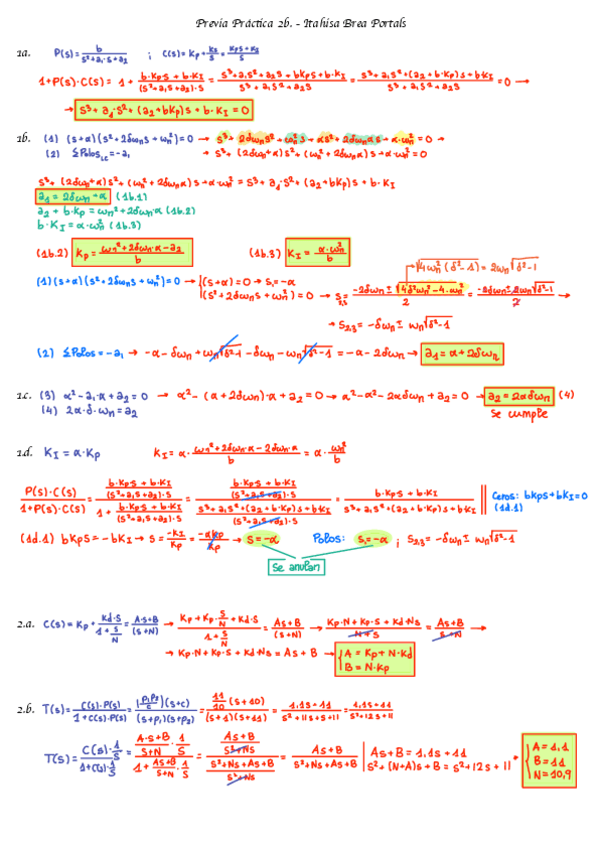 Previa Práctica 2b. - Itahisa Brea Portals
1a. P(s) = b / (s²+a₁·s+a₂) ; C(s) = Kp + KI/s = (Kp·s+KI)/s
1+P(s)·C(s) = 1 + (b·Kps + b·KI)/((s²+a₁s+a₂)·s) = (s³+a₁s²+a₂s+bKps+b·KI)/(s³+a₁s²+a₂s) = (s³+a₁s²+(a₂+bKp)s+bKI)/(s³+a₁s²+a₂s) = 0 →
→ s³+a₁s²+(a₂+bKp)s+b·KI = 0
1b. (1) (s+α)(s²+2δωₙs+ωₙ²)=0 → s³+2δωₙs²+ωₙ²s+αs²+2δωₙαs+α·ωₙ² = 0 →
(2) ΣPolos_LC = -a₁ → s³+(2δωₙ+α)s²+(ωₙ²+2δωₙα)s+α·ωₙ²=0
s³+(2δωₙ+α)s²+(ωₙ²+2δωₙα)s+α·ωₙ² = s³+a₁·s²+(a₂+bKp)s+b·KI
a₁ = 2δωₙ+α (1b.1)
a₂+b·Kp = ωₙ²+2δωₙ·α (1b.2)
b·KI = α·ωₙ² (1b.3)
(1b.2) Kp = (ωₙ²+2δωₙ·α-a₂)/b (1b.3) KI = α·ωₙ²/b
√(4ωₙ²(δ²-1)) = 2ωₙ√(δ²-1)
(1) (s+α)(s²+2δωₙs+ωₙ²)=0 → (s+α)=0 → s₁=-α
(s²+2δωₙs+ωₙ²)=0 → s₂,₃ = (-2δωₙ±√(4δ²ωₙ²-4·ωₙ²))/2 = (-2δωₙ±2ωₙ√(δ²-1))/2 →
→ s₂,₃ = -δωₙ±ωₙ√(δ²-1)
(2) ΣPolos = -a₁ → -α-δωₙ+ωₙ√(δ²-1)-δωₙ-ωₙ√(δ²-1) = -α-2δωₙ → a₁ = α+2δωₙ
1c. (3) α²-a₁·α+a₂=0 → α²-(α+2δωₙ)·α+a₂=0 → α²-α²-2αδωₙ+a₂=0 → a₂=2αδωₙ (4)
(4) 2α·δ·ωₙ=a₂ se cumple
1d. KI = α·Kp KI = α·(ωₙ²+2δωₙ·α-2δωₙ·α)/b = α·ωₙ²/b
P(s)·C(s)/(1+P(s)·C(s)) = ((b·Kps+b·KI)/((s²+a₁s+a₂)·s))/(1+(b·Kps+b·KI)/((s²+a₁s+a₂)·s)) = ((b·Kps+b·KI)/((s²+a₁s+a₂)·s))/((s³+a₁s²+(a₂+b·Kp)s+bKI)/((s²+a₁s+a₂)·s)) = (b·Kps+b·KI)/(s³+a₁s²+(a₂+b·Kp)s+bKI) Ceros: bKps+bKI=0
(1d.1)
(1d.1) bKps=-bKI → s=-KI/Kp=-αKp/Kp → s=-α Polos: s₁=-α ; s₂,₃=-δωₙ±ωₙ√(δ²-1)
se anulan
2.a. C(s)=Kp+Kd·s/(1+s/N)=(A·s+B)/(s+N) → (Kp+Kp·s/N+Kd·s)/(1+s/N)=(As+B)/(s+N) → (Kp·N+Kp·s+Kd·Ns)/(N+s)=(As+B)/(s+N) →
→ Kp·N+Kp·s+Kd·Ns=As+B → A=Kp+N·Kd
B=N·Kp
2.b. T(s)=C(s)·P(s)/(1+C(s)·P(s))=((p₁p₂/c)(s+c))/((s+p₁)(s+p₂))=(11/10(s+10))/((s+1)(s+11))=(1,1s+11)/(s²+11s+s+11)=(1,1s+11)/(s²+12s+11)
T(s)=(C(s)·1/s)/(1+C(s)·1/s)=((A·s+B)/(s+N)·1/s)/(1+(As+B)/(s+N)·1/s)=((As+B)/(s²+Ns))/((s²+Ns+As+B)/(s²+Ns))=(As+B)/(s²+Ns+As+B) As+B=1,1s+11 A=1,1
s²+(N+A)s+B=s²+12s+11 B=11
N=10,9